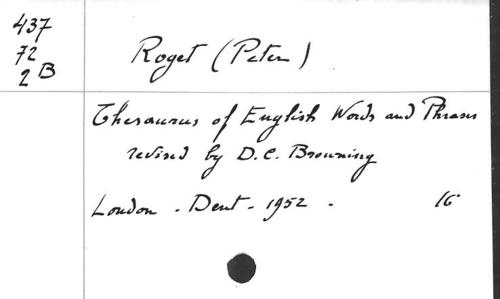 437
72
2B
Roget (Peter)
Thesaurus of English Words and Phrases
revised by D.C. Browning
London - Dent - 1952 - 16